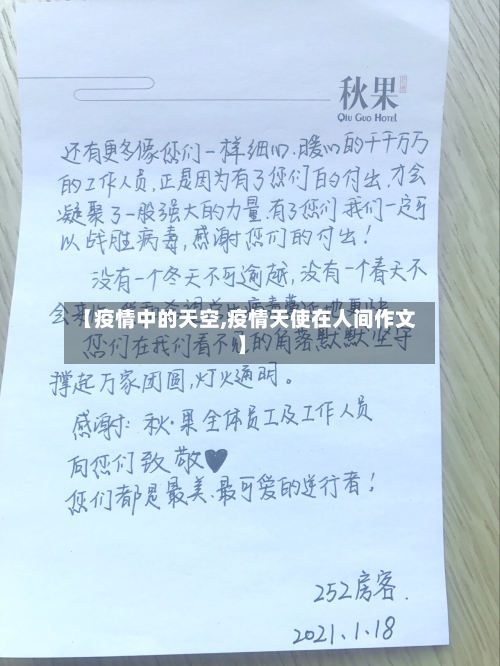 秋果
Qiu Guo Hotel
还有更多像您们一样细心、暖心的千千万万
的工作人员,正是因为有了您们的付出,才会
凝聚了一股强大的力量,有了您们我们一定可
以战胜病毒,感谢您们的付出!
没有一个冬天不可逾越,没有一个春天不
会来
【疫情中的天空,疫情天使在人间作文
】
您们在我们看不见的角落默默坚守
撑起万家团圆,灯火通明。
感谢:秋果全体员工及工作人员
向您们致敬♥
您们都是最美、最可爱的逆行者!
252房客.
2021.1.18